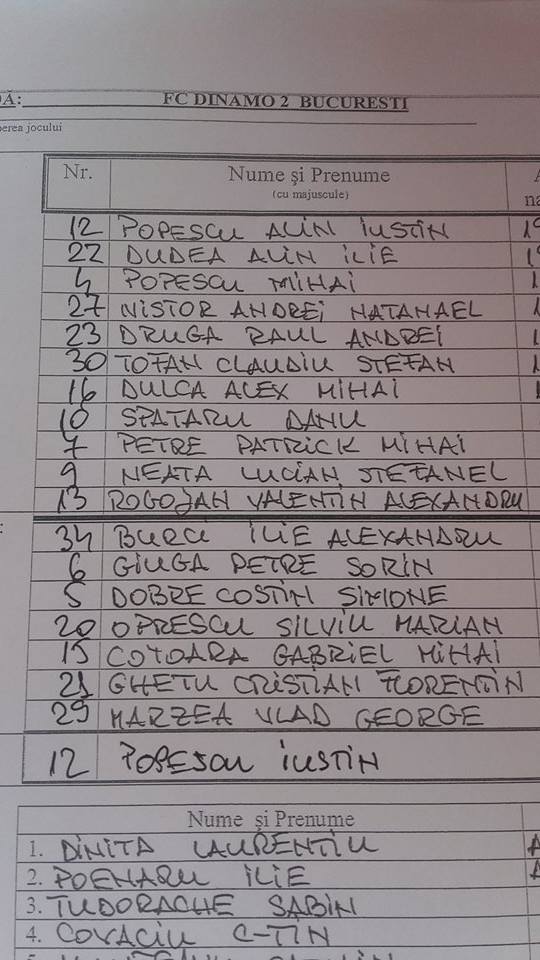 DĂ: FC DINAMO 2 BUCURESTI
perea jocului
Nr. Nume şi Prenume
(cu majuscule)
12 POPESCU ALIN IUSTIN
22 DUDEA ALIN ILIE
4 POPESCU MIHAI
27 NISTOR ANDREI NATANAEL
23 DRUGA RAUL ANDREI
30 TOFAN CLAUDIU STEFAN
16 DULCA ALEX MIHAI
10 SPATARU DANU
7 PETRE PATRICK MIHAI
9 NEATA LUCIAN STEFANEL
13 ROGOJAN VALENTIN ALEXANDRU
34 BURCI ILIE ALEXANDRU
6 GIUGA PETRE SORIN
5 DOBRE COSTIN SIMIONE
20 OPRESCU SILVIU MARIAN
15 COTOARA GABRIEL MIHAI
21 GHETU CRISTIAN FLORENTIN
29 MARZEA VLAD GEORGE
12 POPESCU IUSTIN
Nume şi Prenume
1. DINITA LAURENTIU
2. POENARU ILIE
3. TUDORACHE SABIN
4. COVACIU C-TIN